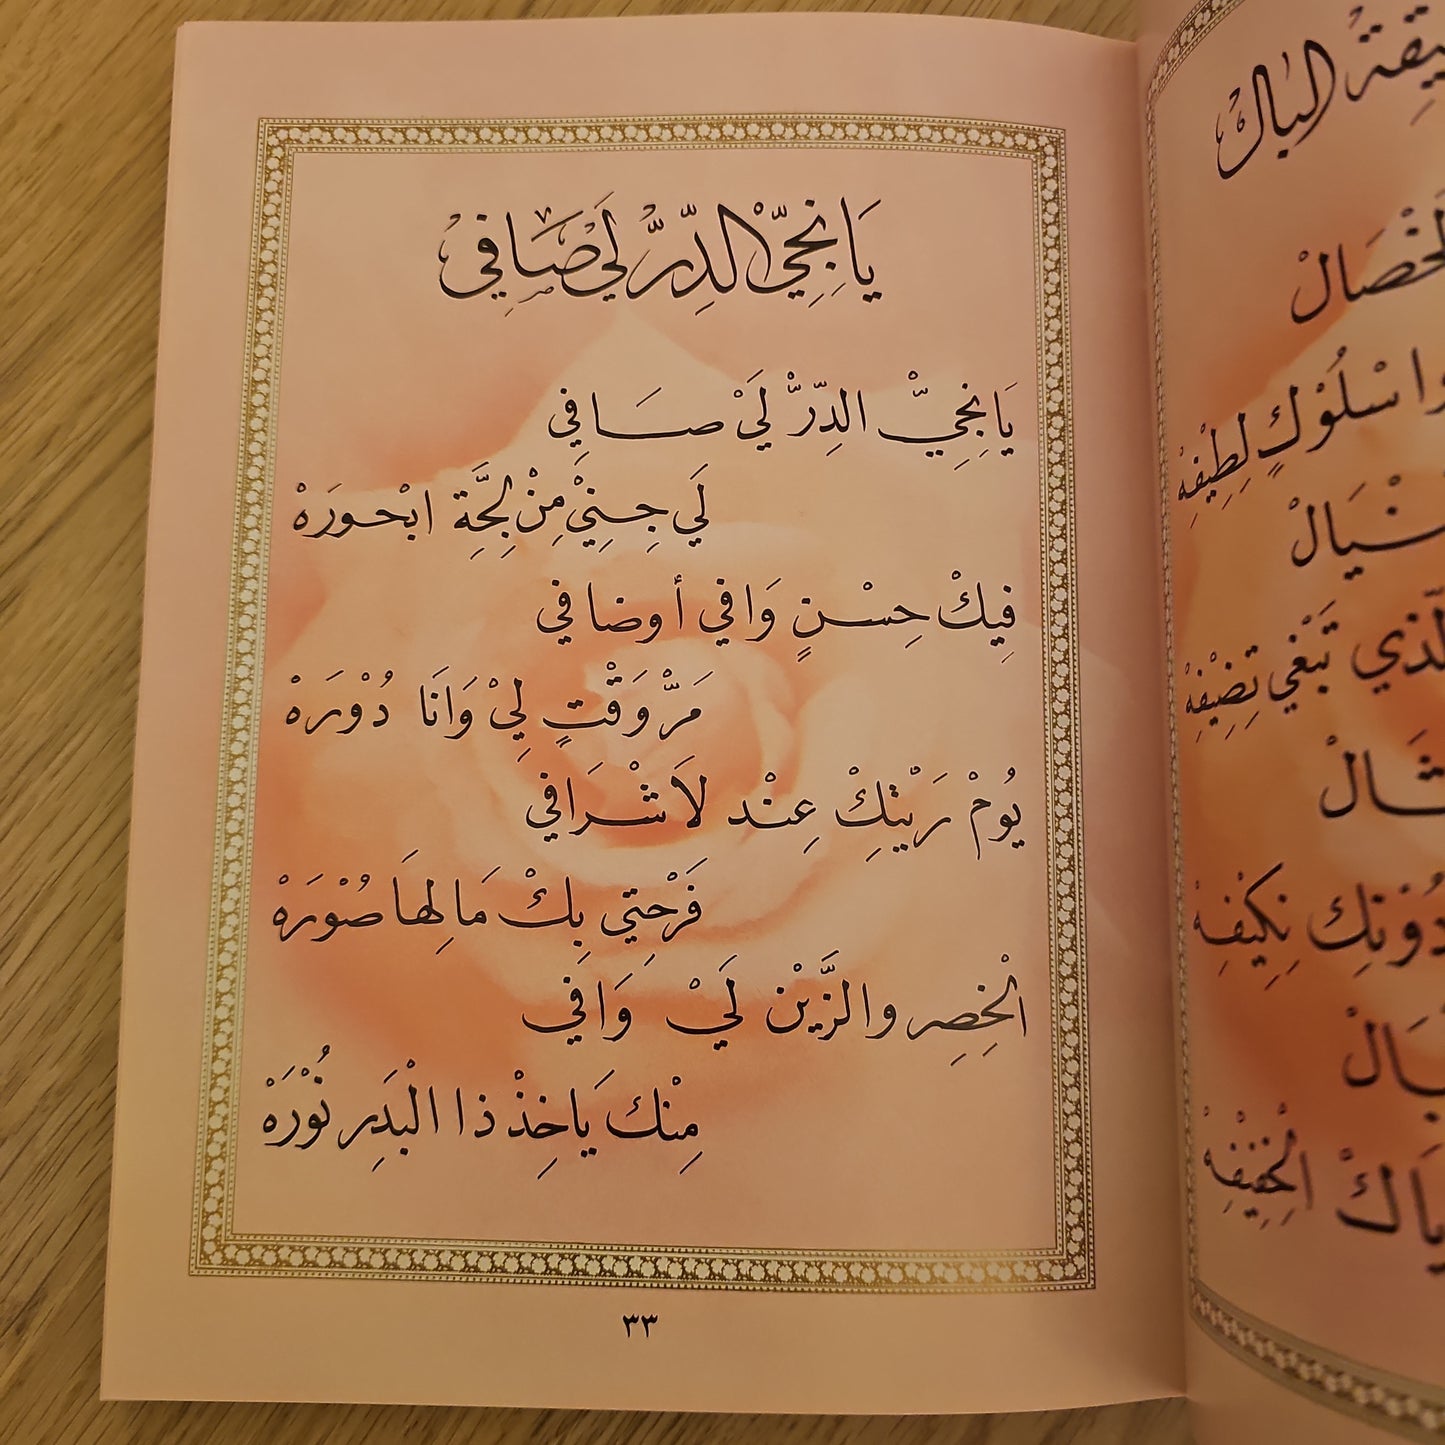 يَا نِجِيّْ الدِّرّْ لَي صَافِي
يَا نِجِيّْ الدِّرّْ لَيْ صَافِي
لَي جِنِيْ مِنْ لِجَّةِ ابْحورَهْ
فِيكْ حِسْنٍ وَافي أوضافي
مَرّْ وَقْتٍ لِيْ وَانَا دُوْرَهْ
يُومْ رَيْتِكْ عِنْد لاَشْرَافي
فَرْحِتي بِكْ مَا لِهَا صُوْرَهْ
الْخِصِر والزَّيْن لَيْ وَافي
مِنْك يَاخِذْ ذا الْبَدِر نُوْرَهْ
٣٣
البال
الخْصَالْ
وَاسْلُوْكٍ لِطِيْفِهْ
الّذي تَبْغي تِضِيْفِهْ
دُوْنِك نِكِيْفِهْ
الْخِفِيْفِهْ